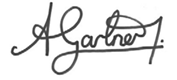 A Gartner